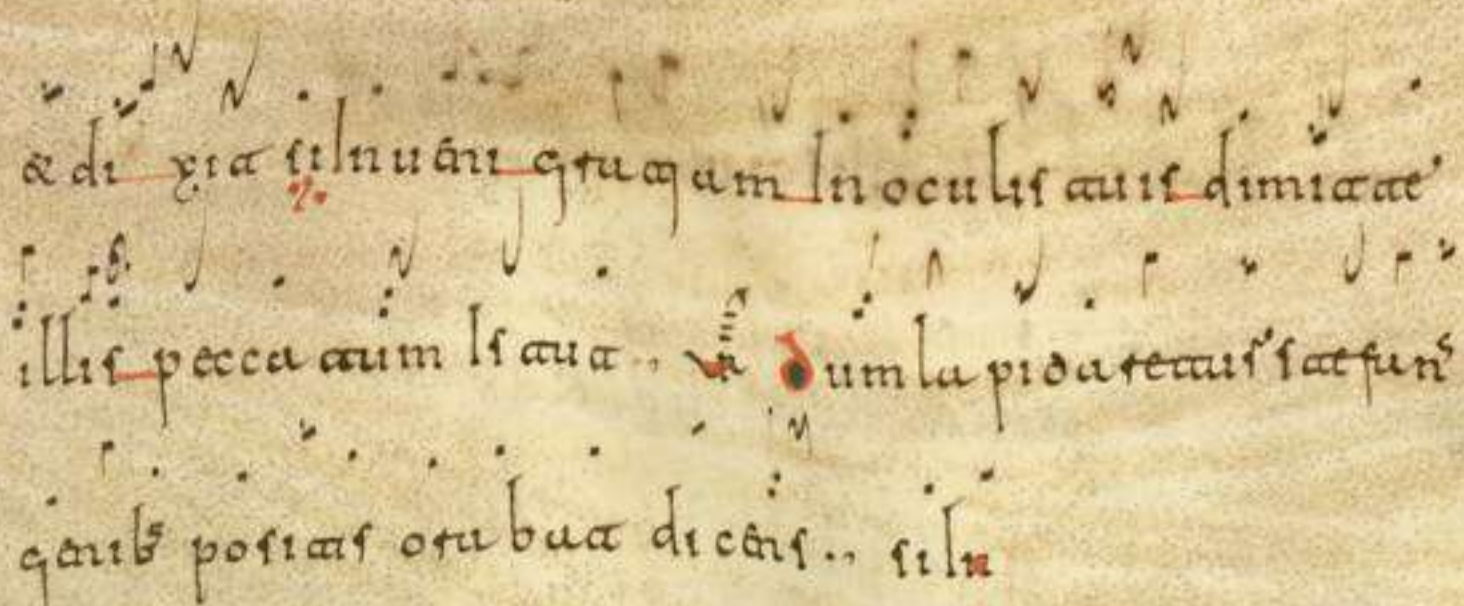 & dixit si Inueni gratiam In oculis tuis dimitte
illis peccatum Istut .. Dum lapidaretur stefans
genibs positis orabat dicens .. si In